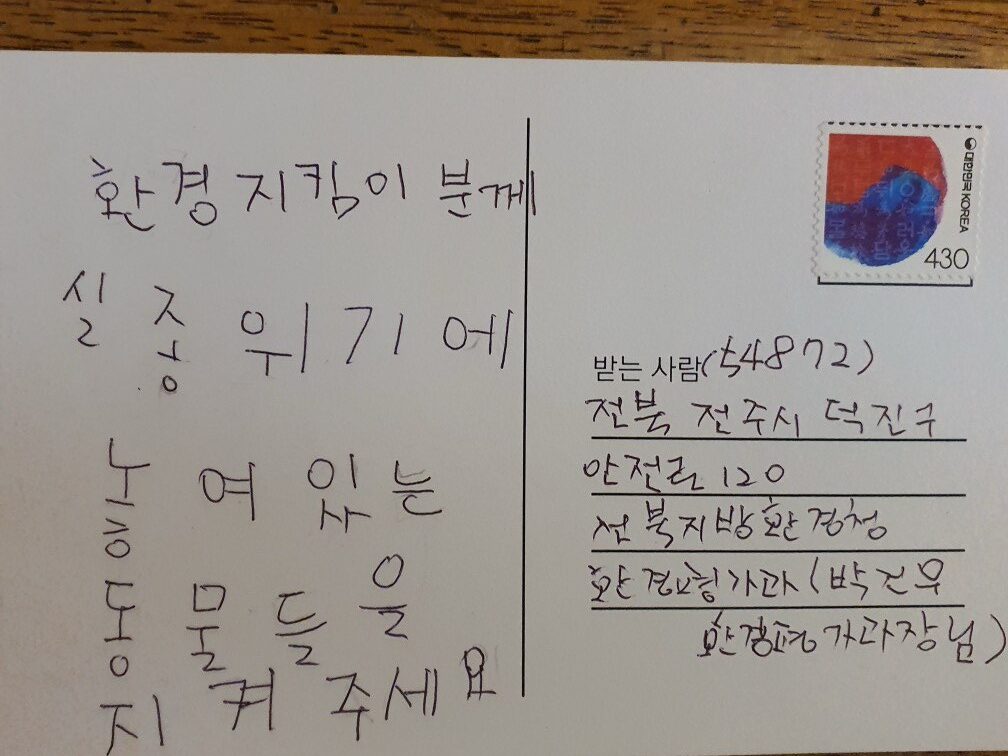 환경지킴이 분께
실종위기에
노
여있는
동물들을
지켜주세요
대한민국 KOREA
430
받는 사람(54872)
전북 전주시 덕진구
안전로 120
전북지방환경청
환경평가과(박건우
환경평가과장님)